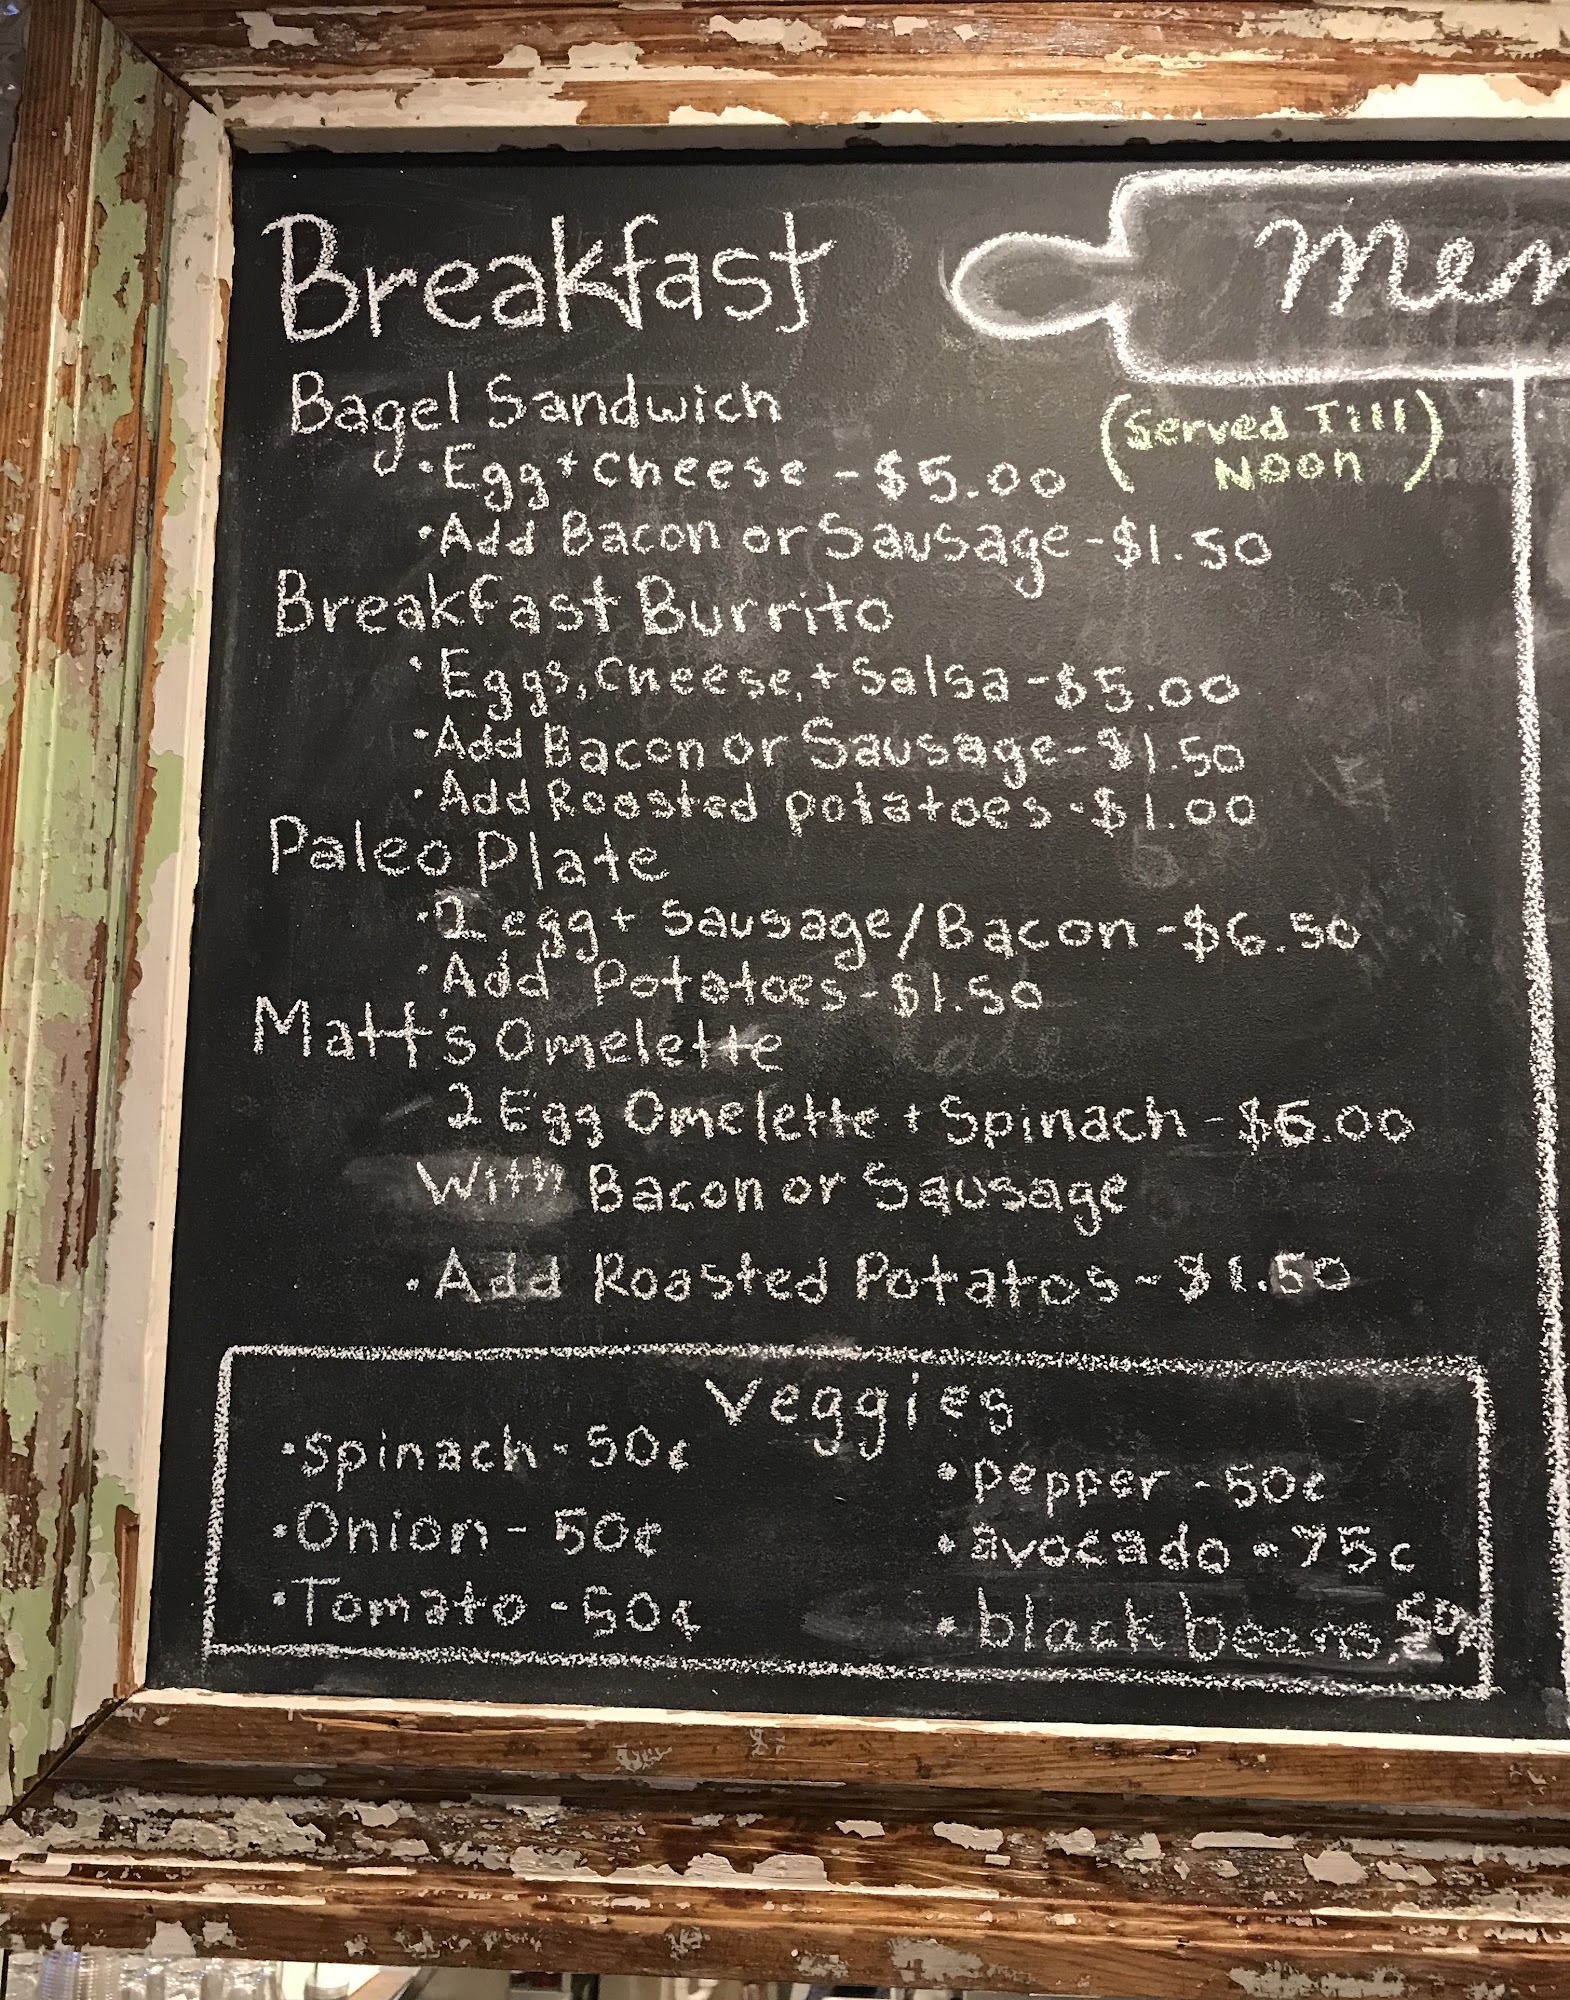 Breakfast
Men
Bagel Sandwich
(Served Till
Noon)
• Egg + Cheese - $5.00
• Add Bacon or Sausage - $1.50
Breakfast Burrito
• Eggs, Cheese, + Salsa - $5.00
• Add Bacon or Sausage - $1.50
• Add Roasted potatoes - $1.00
Paleo Plate
• 2 egg + Sausage/Bacon - $6.50
• Add Potatoes - $1.50
Matt's Omelette
2 Egg Omelette + Spinach - $6.00
With Bacon or Sausage
• Add Roasted Potatos - $1.50
Veggies
• Spinach - 50¢
• Onion - 50¢
• Tomato - 50¢
• pepper - 50¢
• avocado - 75c
• black beans, 50¢